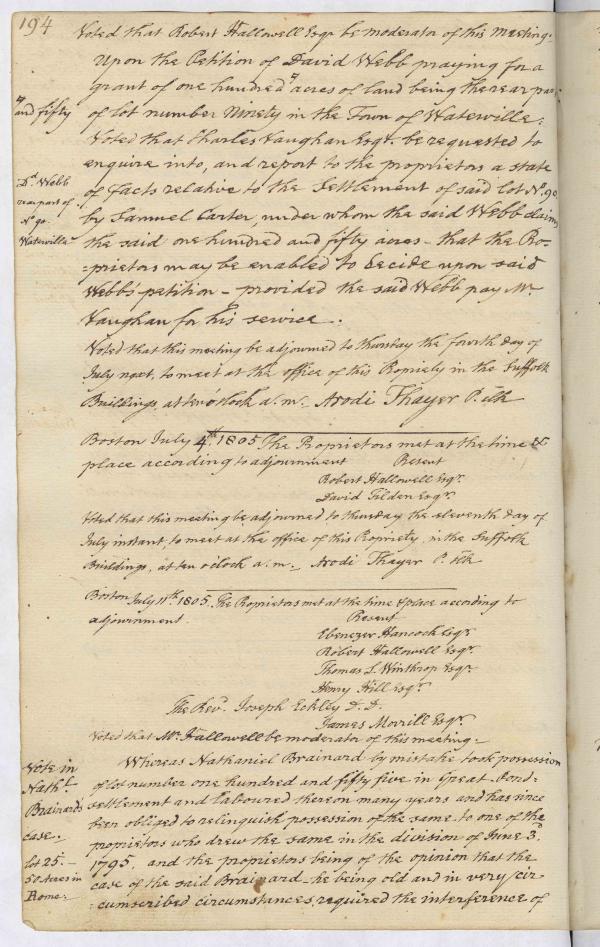 194
Voted that Robert Hallowell Esqr. be moderator of this meeting.
Upon the Petition of David Webb praying for a
grant of one hundred acres of land being the rear part
and fifty
of lot number Ninety in the Town of Waterville:
Voted that Charles Vaughan Esqr. be requested to
enquire into, and report to the proprietors a state
Dd. Webb
rear part of
No. 90
Waterville
of Facts relative to the Settlement of said lot No. 90
by Samuel Carter, under whom the said Webb claims
the said one hundred and fifty acres - that the Pro=
=prietors may be enabled to decide upon said
Webb's petition - provided the said Webb pay Mr.
Vaughan for his service.
Voted that this meeting be adjourned to thursday the fourth day of
July next, to meet at the office of this Propriety in the Suffolk
Buildings, at ten o'clock a.m. Arodi Thayer P. Clk
Boston July 4th. 1805 The Proprietors met at the time &
place according to adjournment Present
Robert Hallowell Esqr.
David Tilden Esqr.
Voted that this meeting be adjourned to thursday the eleventh day of
July instant, to meet at the office of this Propriety, in the Suffolk
Buildings, at ten o'clock a.m. Arodi Thayer P. Clk
Boston July 11th. 1805. The Proprietors met at the time & place according to
adjournment. Present
Ebenezer Hancock Esqr.
Robert Hallowell Esqr.
Thomas L. Winthrop Esqr.
Henry Hill Esqr.
The Revd. Joseph Eckley D.D.
James Morrill Esqr.
Voted that Mr. Hallowell be moderator of this meeting.
Vote in
Nathl.
Brainard's
case.
lot 25.
50 Acres in
Rome.
Whereas Nathaniel Brainard by mistake took possession
of lot number one hundred and fifty five in Great Pond
settlement and laboured thereon many years and has since
been obliged to relinquish possession of the same to one of the
proprietors who drew the same in the division of June 3d.
1795. and the proprietors being of the opinion that the
case of the said Brainard - he being old and in very cir=
=cumscribed circumstances, required the interference of